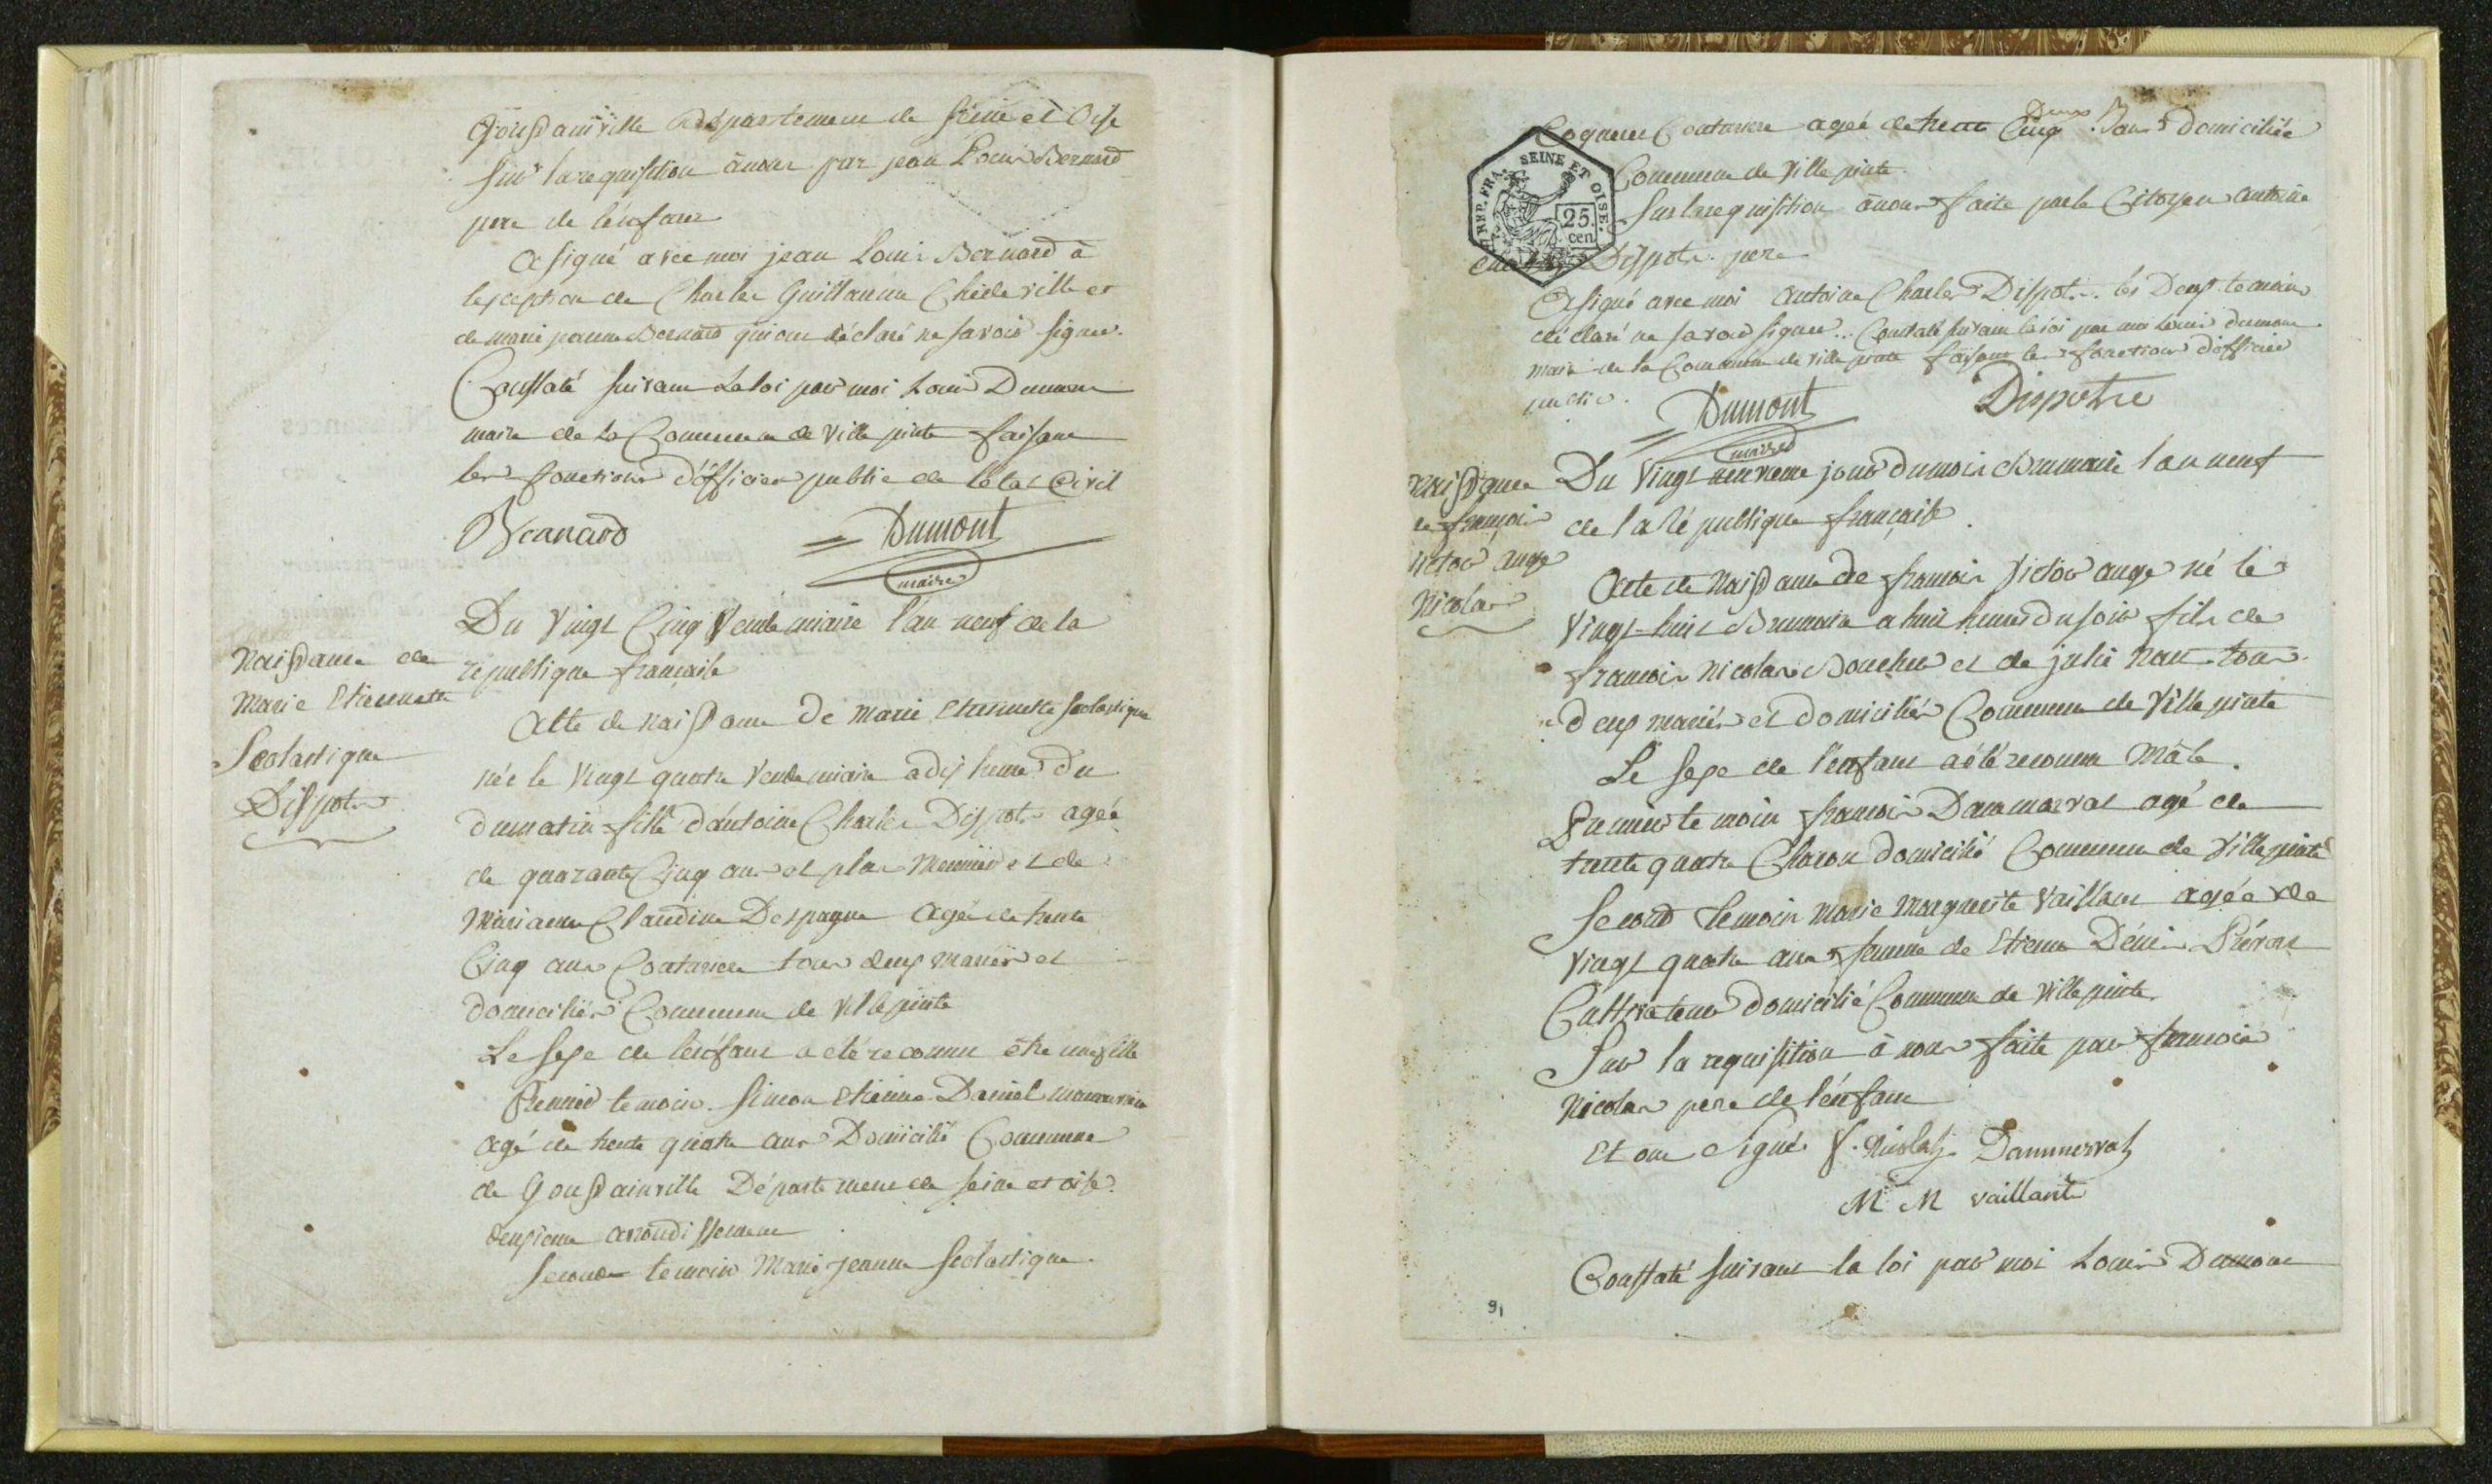 Goussainville Département de Seine et Oise
Sur la requisition à nous par jean Louis Bernard
pere de l'énfant
A signé avec moi jean Louis Bernard à
l'exception de Charles Guillaume Chédeville et
de marie jeanne Bernard qui ont déclaré ne savoir signer.
Constaté suivant la loi par moi Louis Dumont
maire de la Commune de Villepinte faisant
les fonctions d'officier public de l'état Civil
Bernard Dumont
maire
Du Vingt Cinq Vendemiaire l'an neuf de la
republique française
Naissance de
Marie Etiennette
Scolastique
Dispot
Acte de Naissance De Marie Etiennette Scolastique
née le Vingt quatre Vendemiaire a dix heures du
du matin fille d'antoine Charles Dispot agé
de quarante Cinq ans et plus Meunier et de
Marianne Claudine Despagne agée de trente
Cinq ans Couturiere tous deux mariés et
domiciliés Commune de Villepinte
Le sexe de l'énfant a été reconnu être une fille
Premier temoin Simon Etienne Daniel
agé de trente quatre ans Domicilié Commune
de Goussainville Département de Seine et oise
deuxieme arrondissement
Second temoin Marie jeanne Scolastique
Couturiere agée de trente Cinq Deux ans Domiciliée
Commune de Villepinte
REP. FRA. SEINE ET OISE.
25 cen
Sur la requisition à nous faite par le Citoyen antoine
Dispot pere
A signé avec moi antoine Charles Dispot les Deux temoins
déclaré ne savoir signer Constaté suivant la loi par moi Louis dumont
maire de la Commune de Villepinte faisant les fonctions d'officier
public.
Dumont Dispotre
maire
Du Vingt neuvieme jour du mois Brumaire l'an neuf
de la République française
Naissance
de françois
Victor ange
Nicolas
Acte de Naissance de françois Victor ange né le
Vingt-huit Brumaire a huit heures du soir fils de
françois Nicolas Boucher et de julie tous
deux mariés et domiciliés Commune de Villepinte
Le sexe de l'enfant a été reconnu Mâle.
Premier temoin françois Dammerval agé de
trente quatre Charon domicilié Commune de Villepinte
Second temoin Marie Marguerite Vaillant agée de
Vingt quatre ans femme de Etienne Dénis
Cultivateur domicilié Commune de Villepinte
Sur la requisition à nous faite par françois
Nicolas pere de l'énfant
Et ont signé f. Nicolas Dammerval
M M vaillant
Constaté suivant la loi par moi Louis Dumont
91